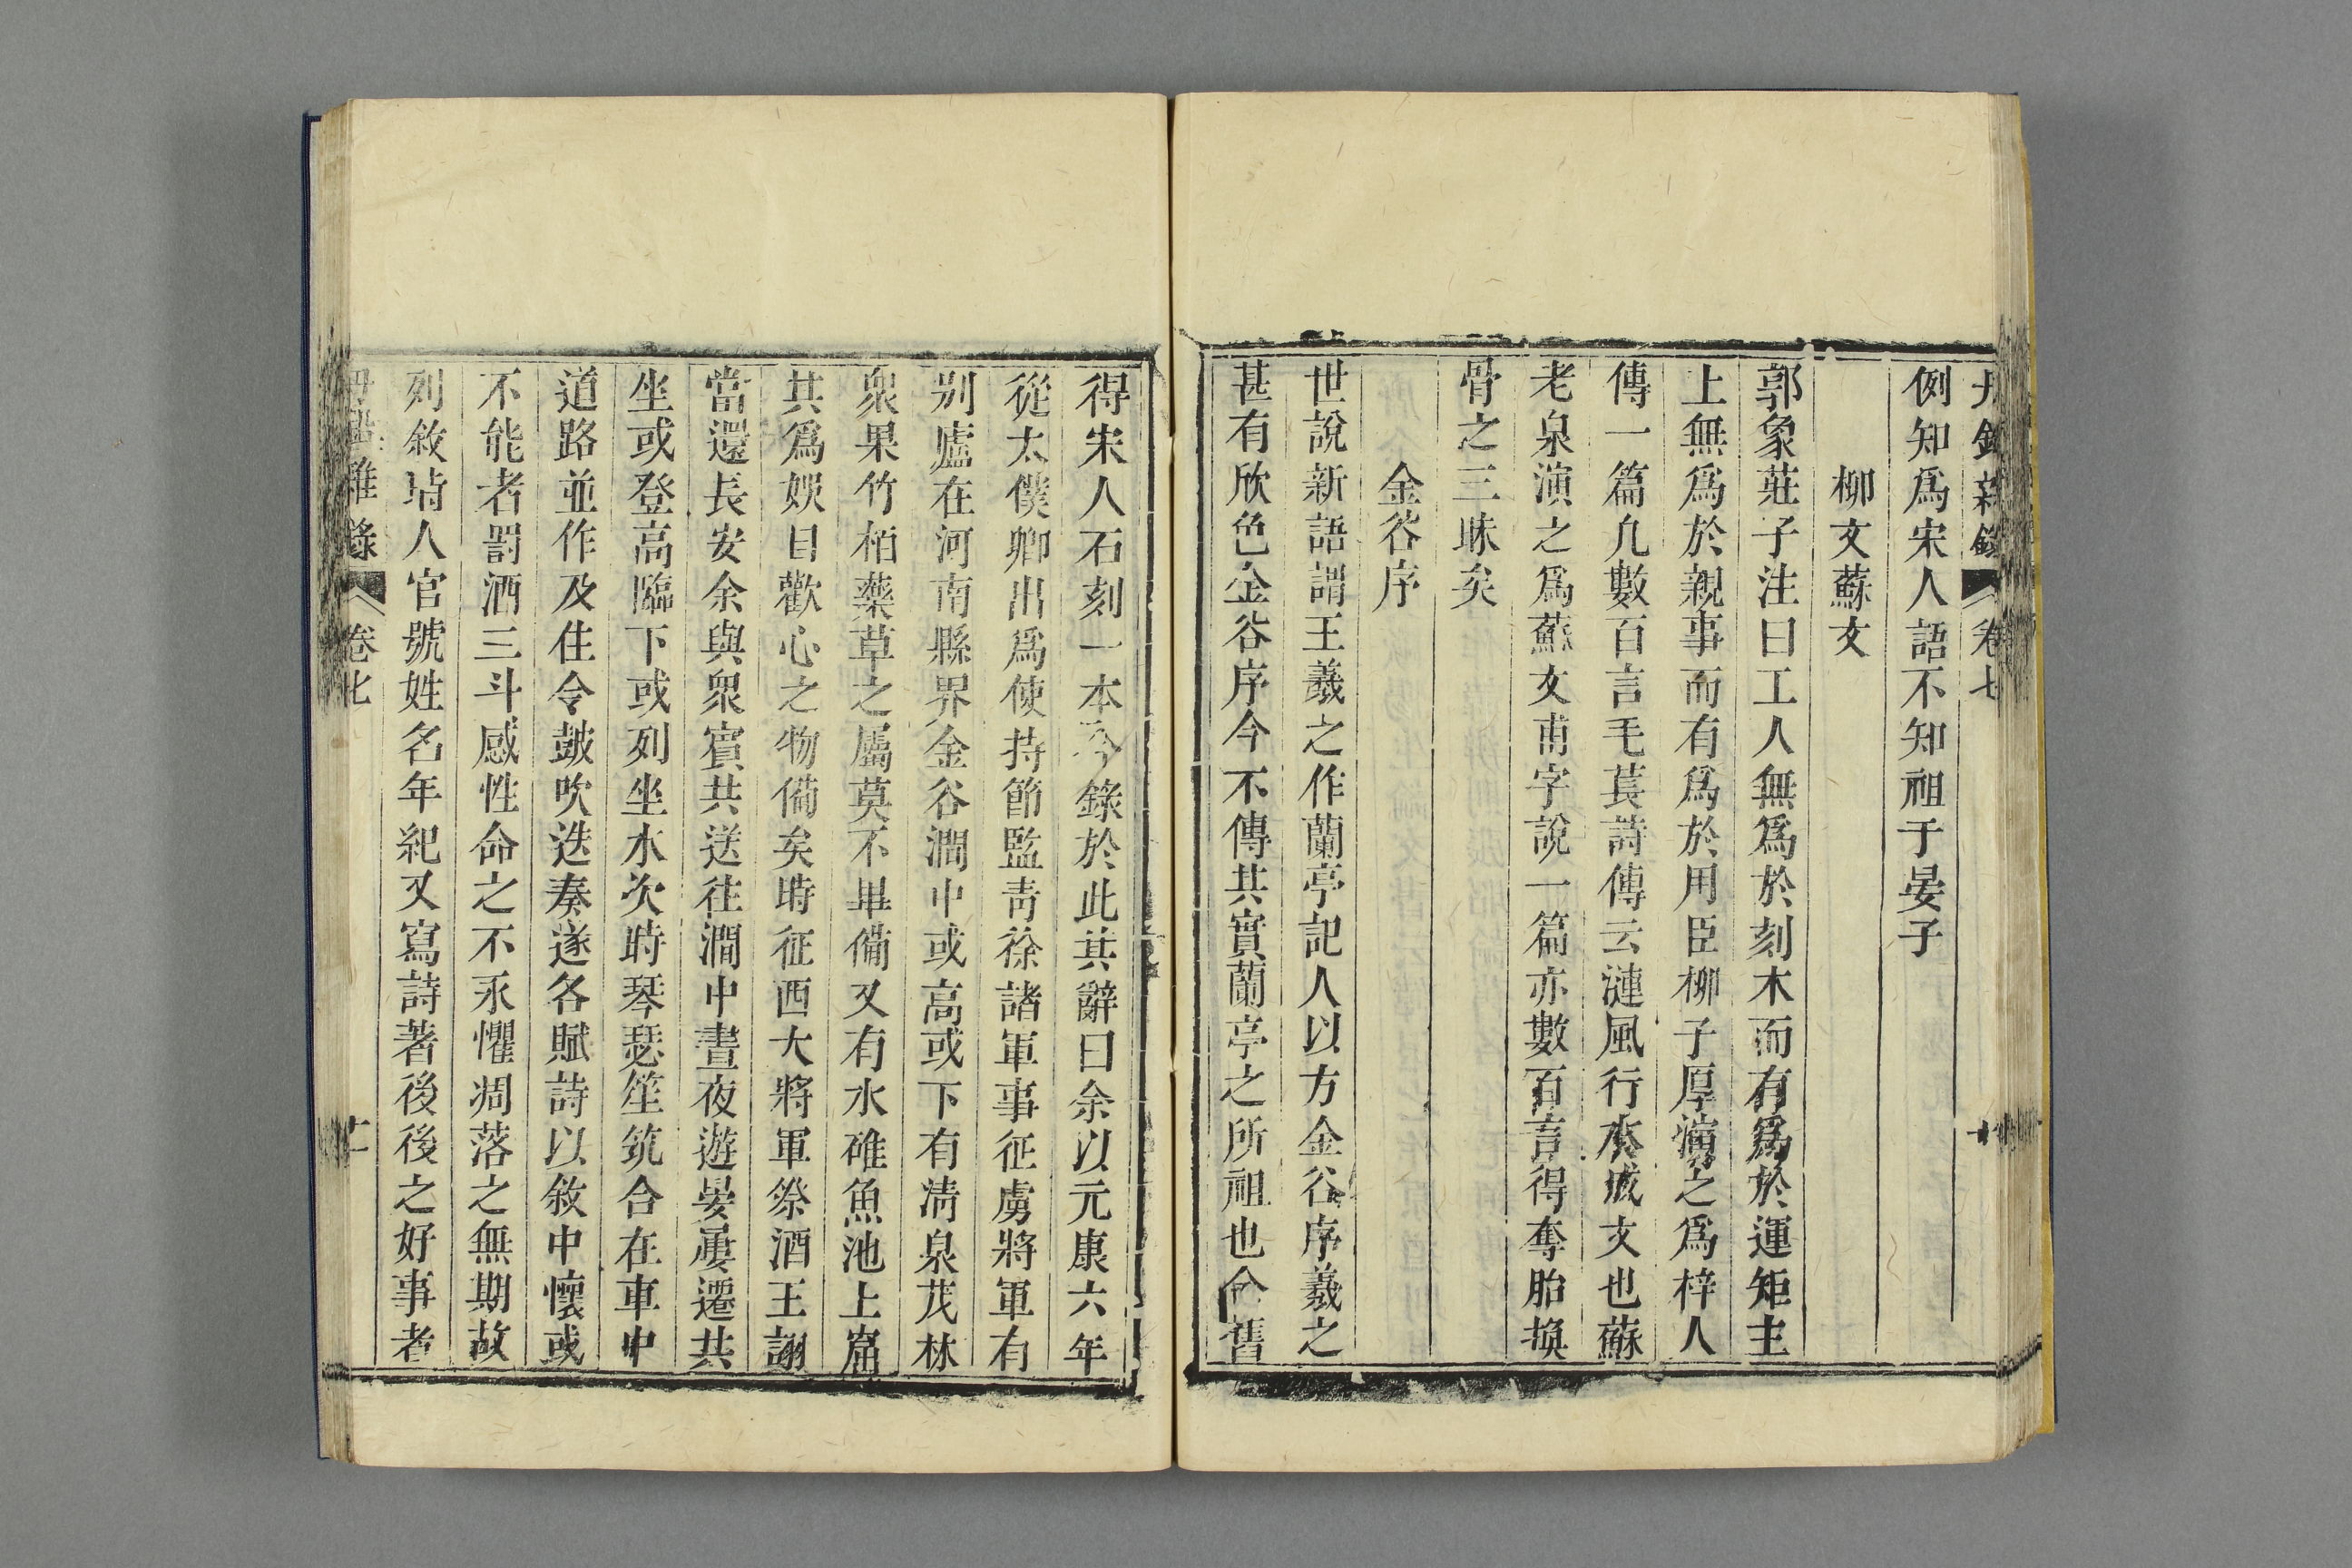 丹鉛雜錄 卷七 十
例知爲宋人語不知祖于晏子
柳文蘇文
郭象莊子注曰工人無爲於刻木而有爲於運矩主
上無爲於親事而有爲於用臣柳子厚演之爲梓人
傳一篇凡數百言毛萇詩傳云漣風行水成文也蘇
老泉演之爲蘇文甫字說一篇亦數百言得奪胎換
骨之三昧矣
金谷序
世說新語謂王羲之作蘭亭記人以方金谷序羲之
甚有欣色金谷序今不傳其實蘭亭之所祖也舊
得宋人石刻一本今錄於此其辭曰余以元康六年
從太僕卿出爲使持節監青徐諸軍事征虜將軍有
別廬在河南縣界金谷澗中或高或下有清泉茂林
衆果竹柏藥草之屬莫不畢備又有水碓魚池土窟
其爲娛目歡心之物備矣時征西大將軍祭酒王詡
當還長安余與衆賓共送往澗中晝夜遊晏屢遷共
坐或登高臨下或列坐水次時琴瑟笙筑合在車中
道路並作及住令鼓吹迭奏遂各賦詩以敘中懷或
不能者罰酒三斗感性命之不永懼凋落之無期故
列敘時人官號姓名年紀又寫詩著後後之好事者
雜錄 卷七 十一